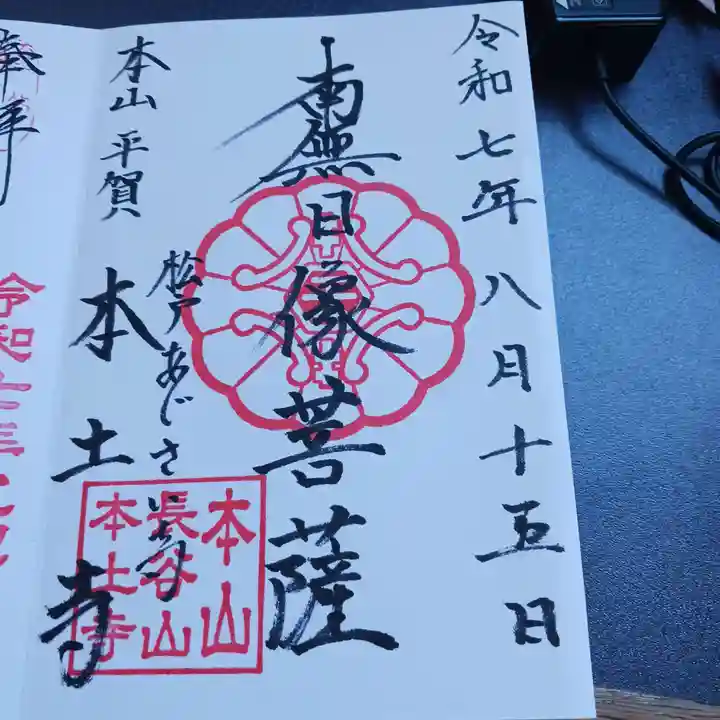 令和七年八月十五日
南無日像菩薩
松戸あじさい寺
本山 平賀
本土寺
本山
長谷山
本土寺
奉拝
令和七年